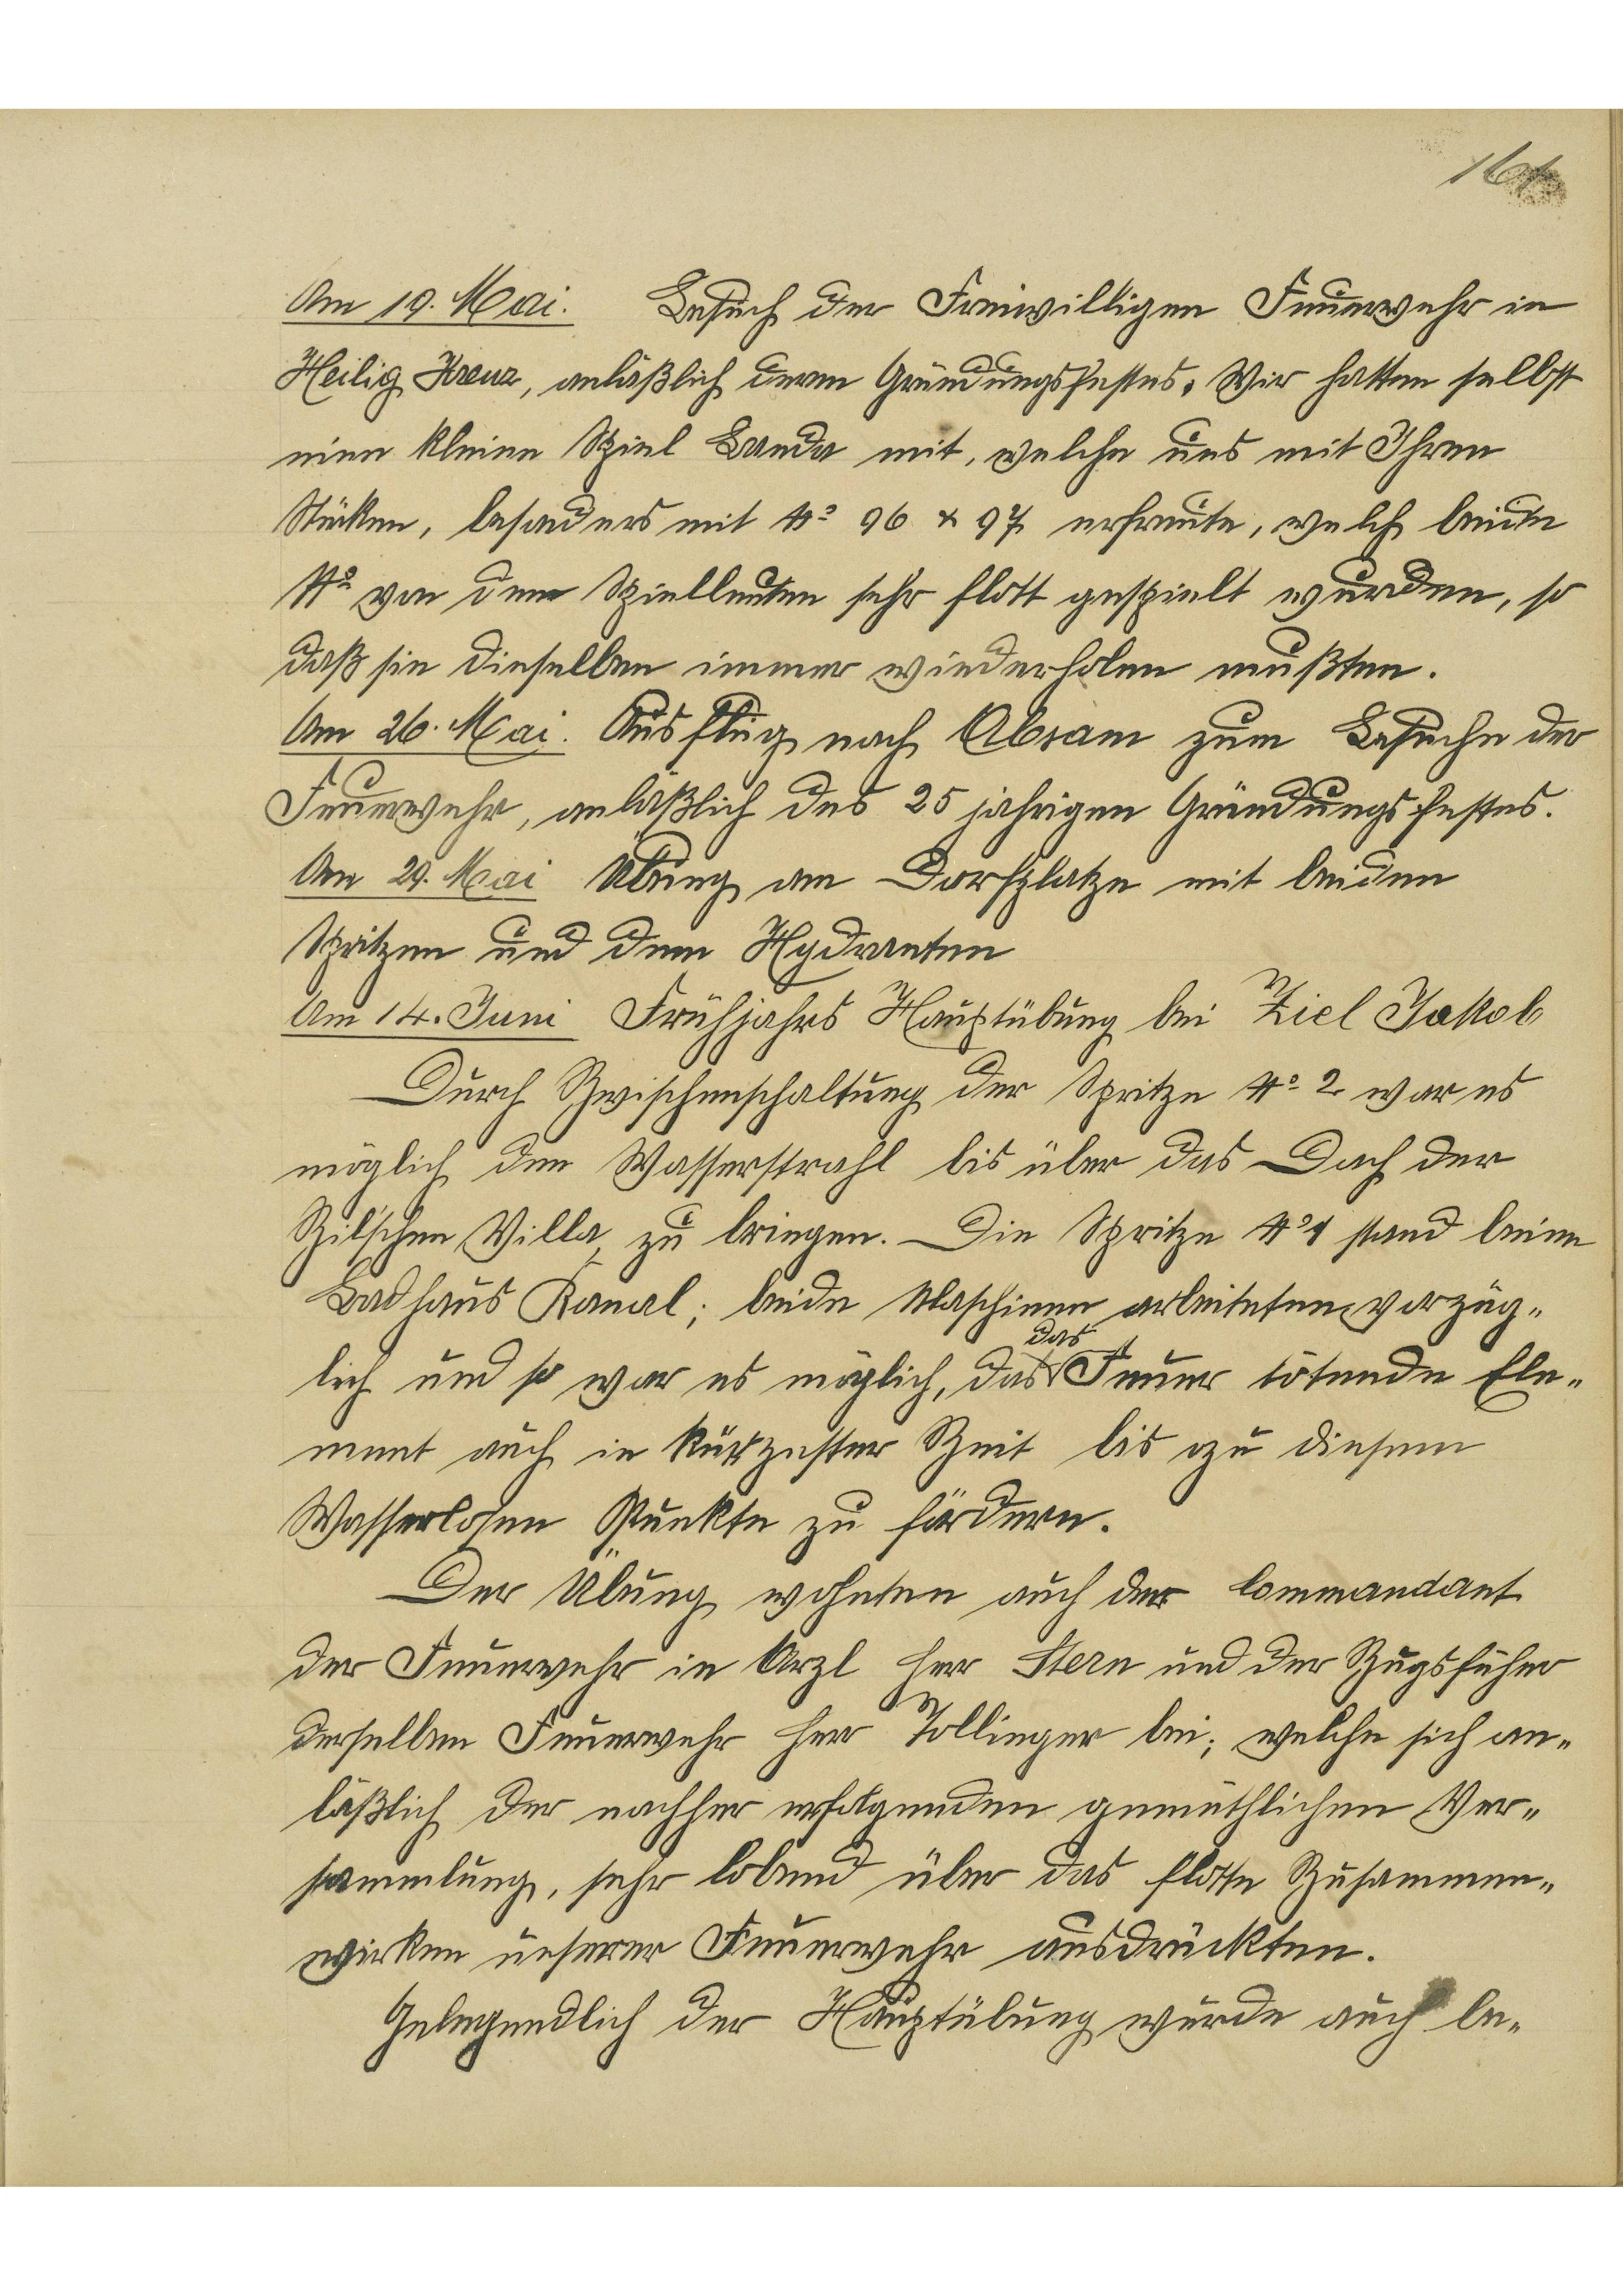 Am 19. Mai. Besuch der Freiwilligen Feuerwehr in
Heilig Kreuz, anläßlich deren Gründungsfestes. Wir hatten selbst
eine kleine Spiel Banda mit, welche uns mit Ihren
Stücken, besonders mit No 96 & 97 erfreute, welch beide
No von den Spielleuten sehr flott gespielt wurden, so
daß sie dieselben immer wiederholen mußten.
Am 26. Mai. Ausflug nach Absam zum Besuche der
Feuerwehr, anläßlich des 25 jahrigen Gründungsfestes.
Am 29. Mai Übung am Dorfplatze mit beiden
Spritzen und dem Hydranten
Am 14. Juni Frühjahrs Hauptübung bei Ziel Jakob
Durch Zwischenschaltung der Spritze No 2 war es
möglich den Wasserstrahl bis über das Dach der
Zil'schen Villa zu bringen. Die Spritze No 1 stand beim
Badhaus Kanal; beide Maschinen arbeiteten vorzüg„
das
lich und so war es möglich, das Feuer tötende Ele„
ment auch in kürzester Zeit bis zu diesem
Wasserlosen Punkte zu fördern.
Der Übung wohnten auch der Commandant
der Feuerwehr in Arzl Herr Stern und der Zugsführer
derselben Feuerwehr Herr Tollinger bei; welche sich an„
läßlich der nachher erfolgenden gemüthlichen Ver„
sammlung, sehr lobend über das flotte Zusammen„
wirken unserer Feuerwehr ausdrückten.
Gelegendlich der Hauptübung wurde auch be„